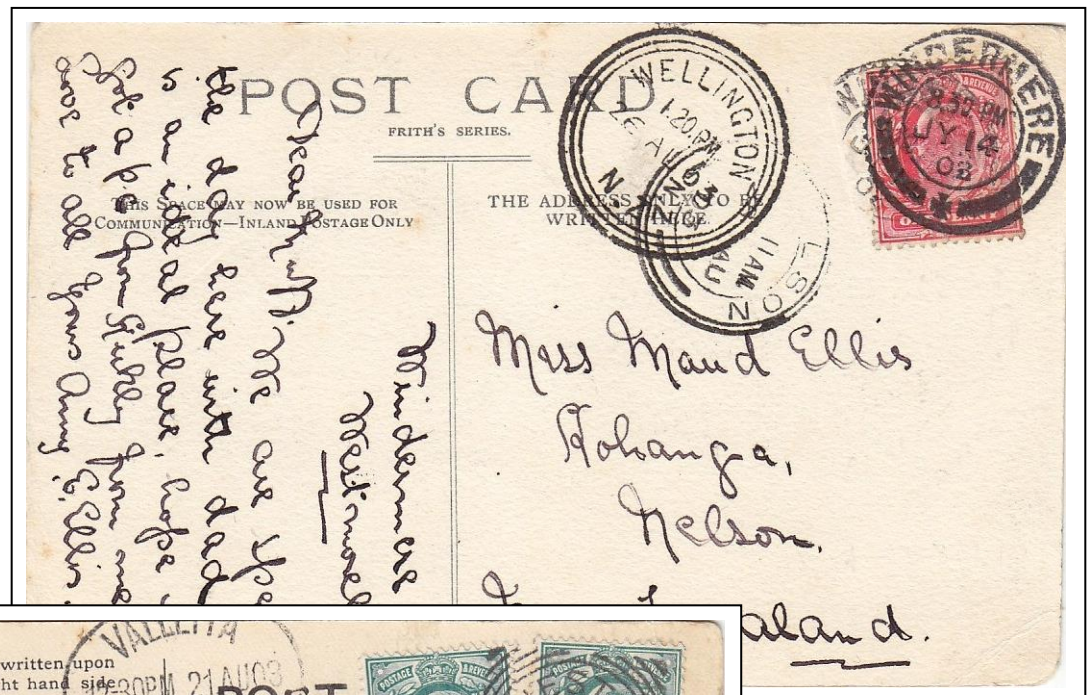 POST CARD
FRITH'S SERIES.
THIS SPACE MAY NOW BE USED FOR
COMMUNICATION—INLAND POSTAGE ONLY
THE ADDRESS ONLY TO BE
WRITTEN HERE.
WELLINGTON
1.20.PM
26 AU 03
N
LSON
11 AM
AU
WINDERMERE
8.30 PM
JY 14
03
& REVENUE
Windermere
Westmorel
Dear Maud We are spe
the day here with dad
is an ideal place. hope
got a pc from Kirkby from me
love to all Yours Amy E. Ellis.
Miss Maud Ellis
Kohanga,
Nelson.
aland.
VALLETTA
30PM 21 AU 03
written upon
ht hand side
POST
POSTAGE & REVENUE
POSTAGE & REVENUE